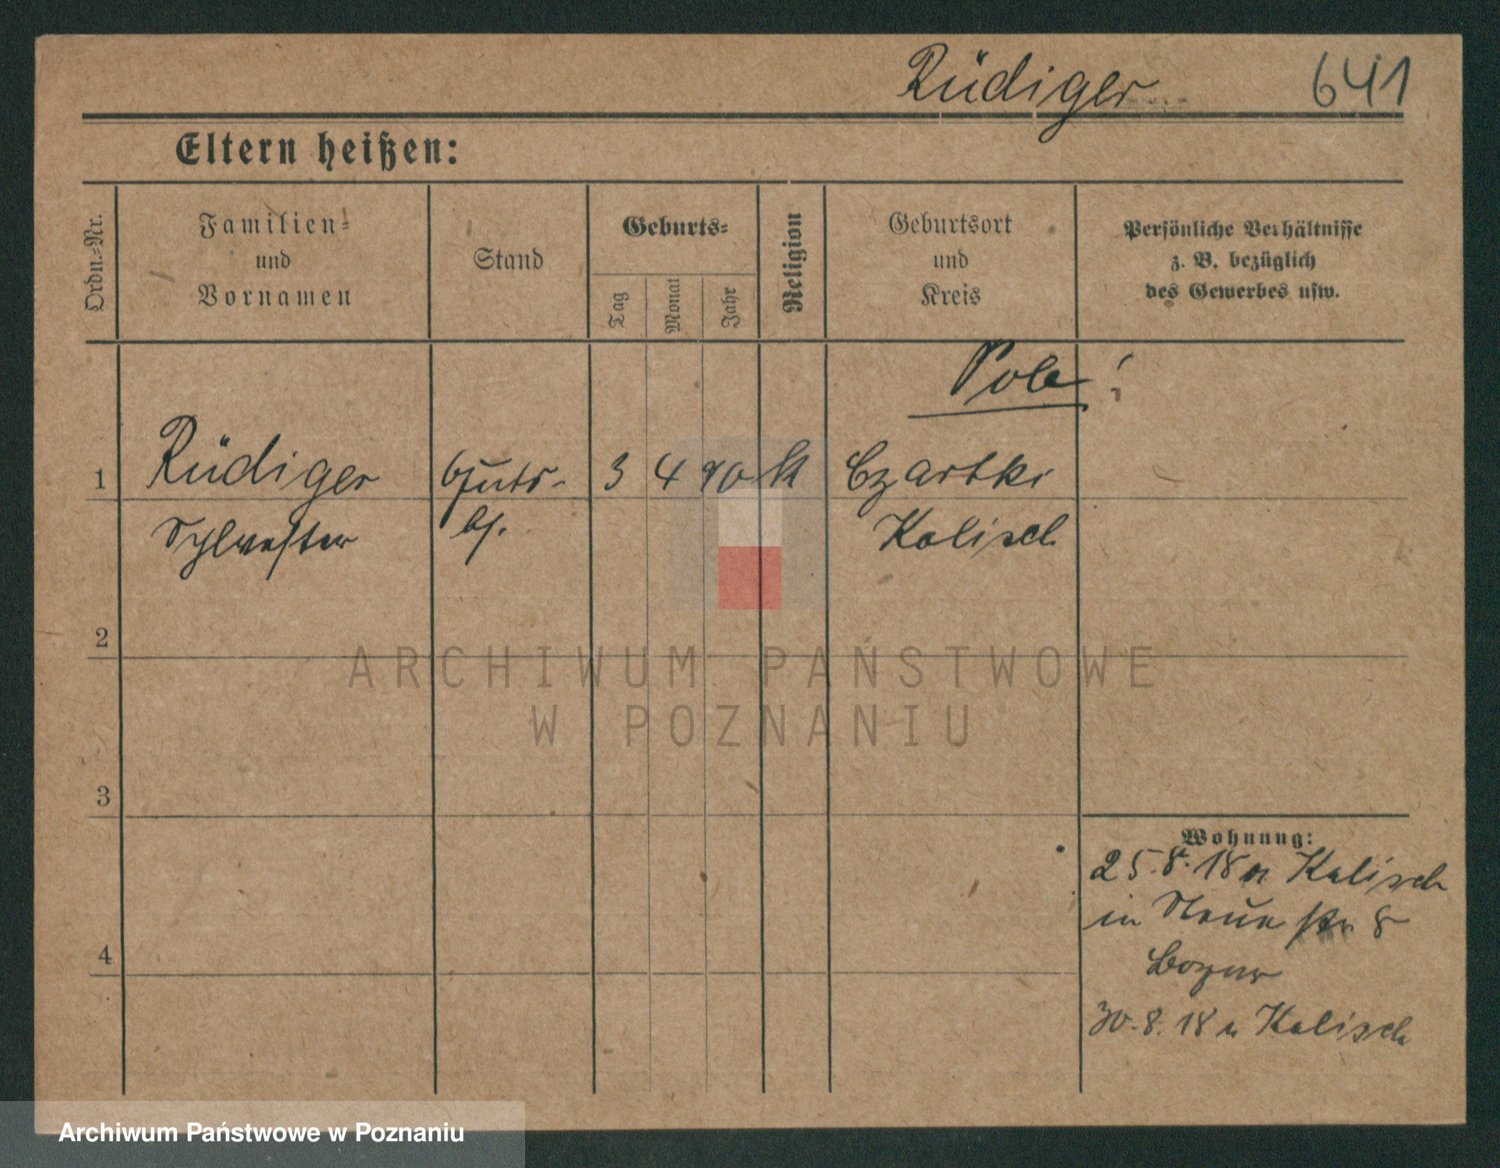 Rüdiger 641
Eltern heißen:
Ordn.-Nr.
Familien-
und
Vornamen
Stand
Geburts-
Tag
Monat
Jahr
Religion
Geburtsort
und
Kreis
Persönliche Verhältnisse
z. B. bezüglich
des Gewerbes usw.
Pole!
1 Rüdiger Guts- 3 4 90 k Czartki
Sylvester bes. Kalisch
2
3
4
Wohnung:
25.8.18 n Kalisch
in Neue str 8
30.8.18 n Kalisch
ARCHIWUM PAŃSTWOWE
W POZNANIU
Archiwum Państwowe w Poznaniu